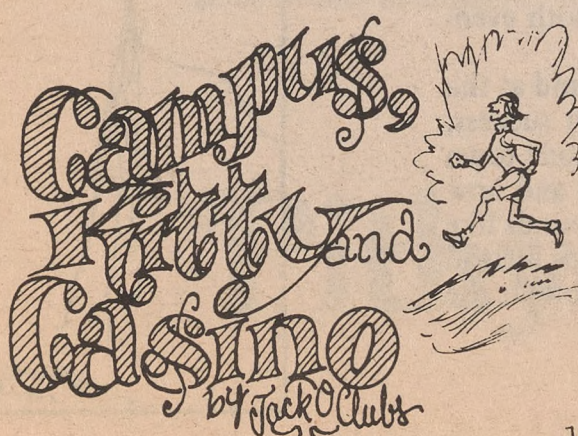 Campus,
Kitty and
Casino
by Jack O Clubs